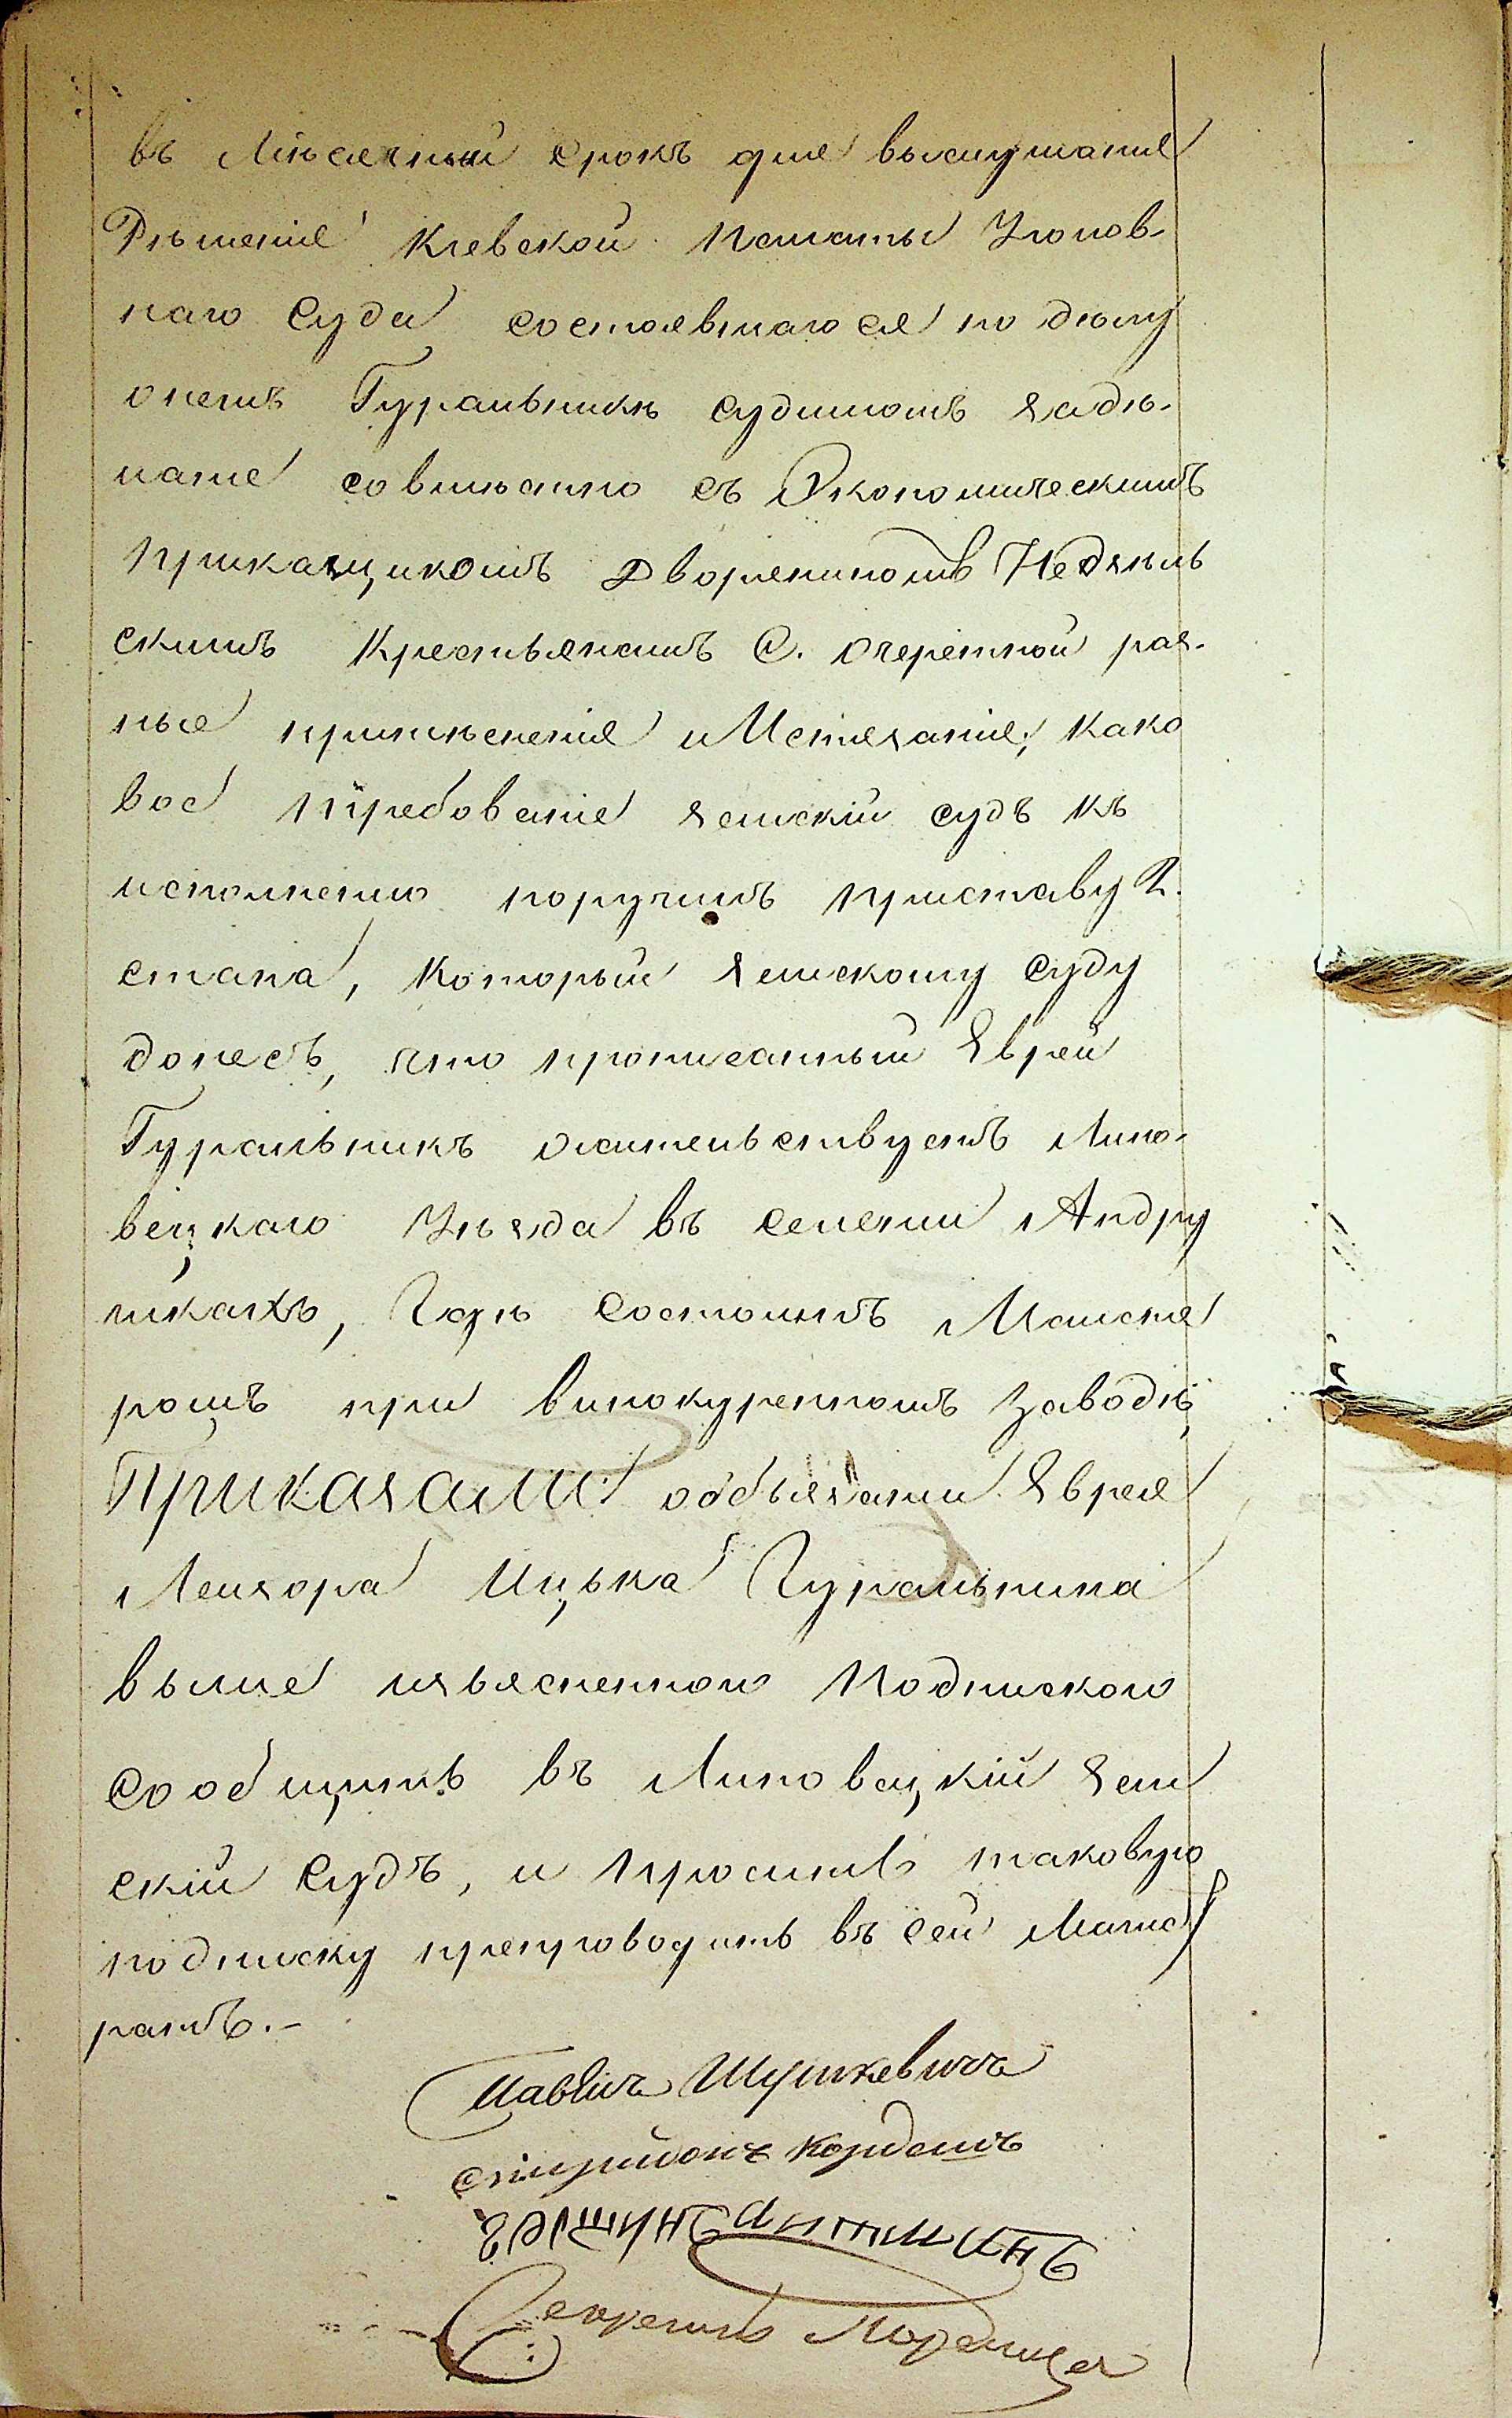 въ Мѣсячный срокъ для выслушанія
Рѣшенія Кіевской Палаты Уголов-
наго Суда состоявшагося по дѣлу
онемъ Гуральникѣ судимомъ задѣ-
лание совмѣстно съ Экономическимъ
прикащикомъ Дворяниномъ Недзѣль
скимъ Крестьянамъ С. Очеретной раз-
ные притѣсненія и Истязанія; како
вое требованіе Земскій судъ къ
исполненію поручилъ приставу 2.
стана, Который Земскому Суду
донесъ, что прописанный Еврей
Гуральникъ жительствуетъ Липо-
вецкаго Уѣзда въ селеніи Андру
шкахъ, Гдѣ Состоитъ Майсте
ромъ при винокуренномъ заводѣ,
Приказали: обѣязаніи Еврея
Лейзора Ицька Гуральника
выше изъясненною Подпискою
Сообщить въ Липовецкій Зем
скій Судъ, и просить таковую
подписку препроводить въ сей Магист
ратъ.-
Шушкевичъ
Спиридонъ Корденъ
Секретарь